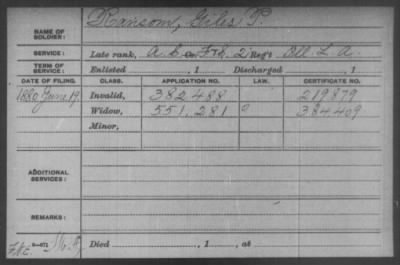 NAME OF SOLDIER: Ransom, Giles P.
SERVICE: Late rank, 2 Reg't Ill. L. A.
TERM OF SERVICE: Enlisted , 1 Discharged , 1
DATE OF FILING. CLASS. APPLICATION NO. LAW. CERTIFICATE NO.
1880 June 19. Invalid, 382.488 219879
Widow, 551.281 384409
Minor,
ADDITIONAL SERVICES:
REMARKS:
Died , 1 , at